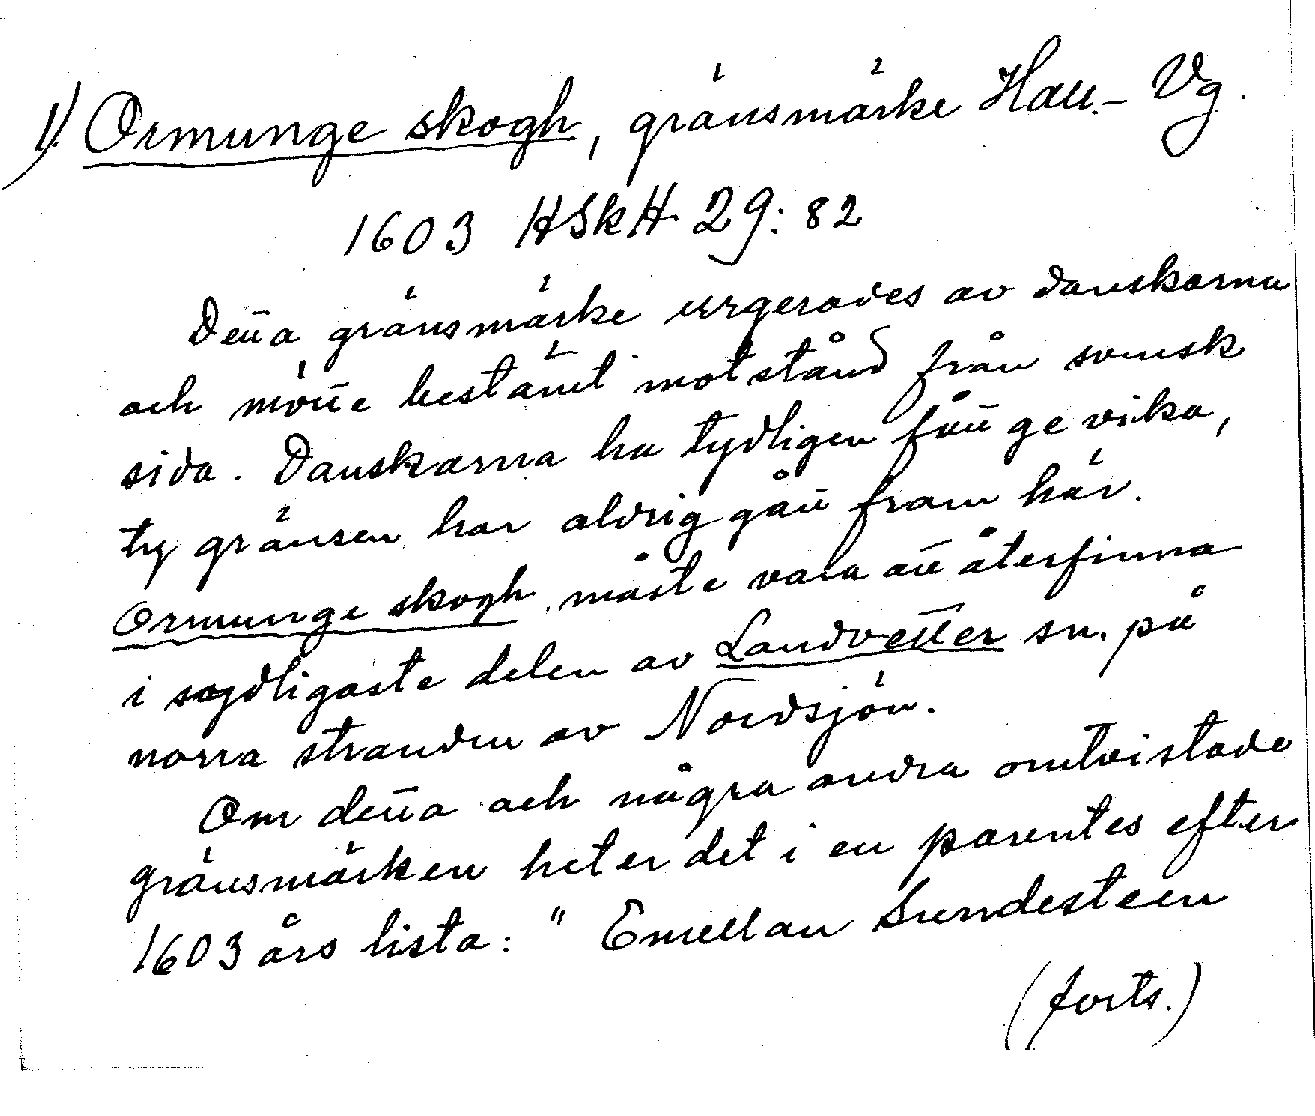 1) Ormunge skogh, gränsmärke Hall. - Vg.
1603 HSkH 29:82
Detta gränsmärke urgerades av danskarna
och mötte bestämt motstånd från svensk
sida. Danskarna ha tydligen fått ge vika,
ty gränsen har aldrig gått fram här.
Ormunge skogh måste vara att återfinna
i sydligaste delen av Landvetter sn. på
norra stranden av Nordsjön.
Om detta och några andra omtvistade
gränsmärken heter det i en parentes efter
1603 års lista: "Emellan Sundesteen
(forts.)